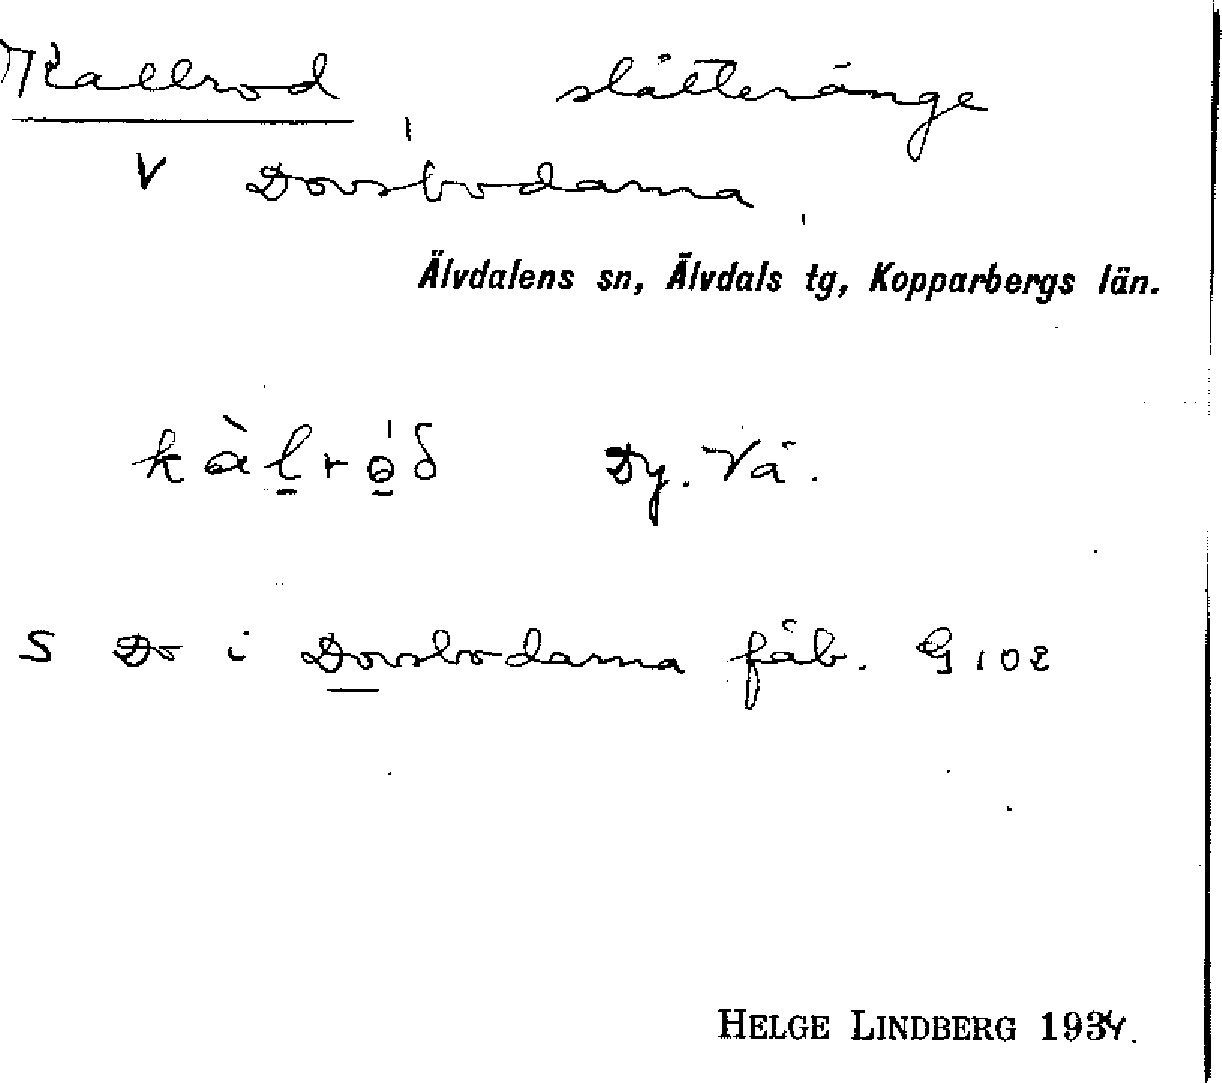 Kallrod slåtteränge
V Dovsbodarna
Älvdalens sn, Älvdals tg, Kopparbergs län.
kàl̠ro̠̍δ Dy. Vä.
S Do i Dovsbodarna fäb. G 102
HELGE LINDBERG 1934.